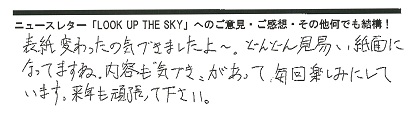 ニュースレター「LOOK UP THE SKY」へのご意見・ご感想・その他何でも結構!
表紙変わったの気づきましたよ〜。どんどん見易い紙面に
なってますね。内容も"気づき"があって、毎回楽しみにして
います。来年も頑張って下さい。